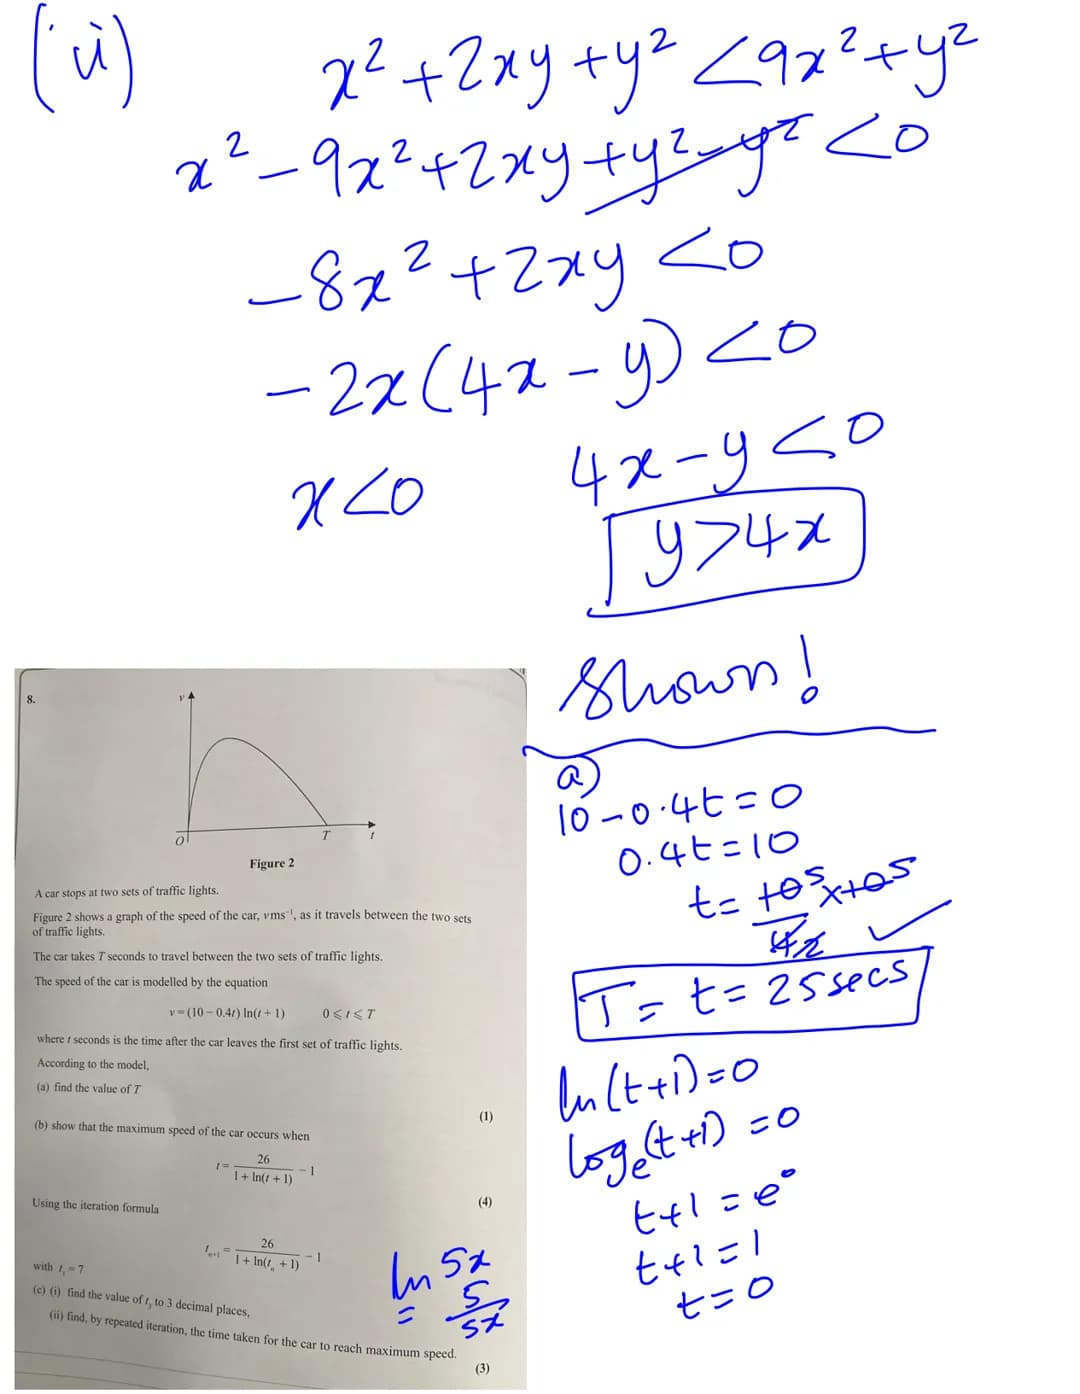 (ii)
x² + 2xy + y² < 9x² + y²
x² - 9x² + 2xy + y² - y² < 0
-8x² + 2xy < 0
-2x(4x - y) < 0
x < 0 4x - y < 0
y > 4x
Shown!
8.
v
O T t
Figure 2
A car stops at two sets of traffic lights.
Figure 2 shows a graph of the speed of the car, v ms⁻¹, as it travels between the two sets
of traffic lights.
The car takes T seconds to travel between the two sets of traffic lights.
The speed of the car is modelled by the equation
v = (10 – 0.4t) ln(t + 1) 0 ⩽ t ⩽ T
where t seconds is the time after the car leaves the first set of traffic lights.
According to the model,
(a) find the value of T
(1)
(b) show that the maximum speed of the car occurs when
t = 26 / (1 + ln(t + 1)) – 1
(4)
Using the iteration formula
tₙ₊₁ = 26 / (1 + ln(tₙ + 1)) – 1
with t₁ = 7
(c) (i) find the value of t₃ to 3 decimal places,
(ii) find, by repeated iteration, the time taken for the car to reach maximum speed.
(3)
ln 5x
= 5/5x
a)
10 - 0.4t = 0
0.4t = 10
t = 10 5 x 10 5
4 2
T = t = 25 secs
ln(t+1) = 0
logₑ(t+1) = 0
t+1 = e⁰
t+1 = 1
t = 0